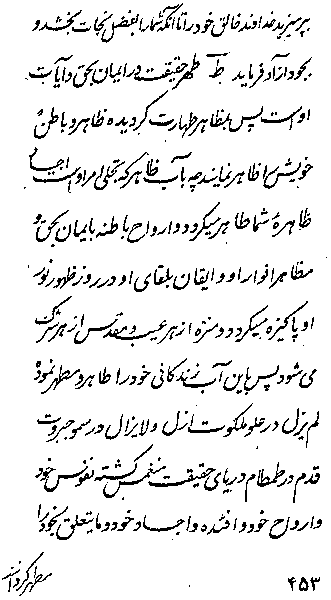 بپرستید خداوند خالق خود را تا آنکه شما را بفضل نجات بخشد و
بجود آزاد فرماید ط طهر حقیقت در ایمان بحق و آیات
اوست پس بمظاهر طهارت گردیده ظاهر و باطن
خویش را ظاهر نمایند چه بآب ظاهر که تجلی امر اوست اجساد
ظاهرهٔ شما طاهر میگردد و ارواح باطنه بایمان بحق و
مظاهر انوار او و ایقان بلقای او در روز ظهور نور
او پاکیزه میگردد و منزه از هر عیب و مقدس از هر شرک
می شود پس باین آب زندگانی خود را طاهر و مطهر نموده
لم یزل در علو ملکوت ازل و لا یزال در سمو جبروت
قدم در طمطام دریای حقیقت منغمس گشته نفوس خود
و ارواح خود و افئده و اجساد خود و ما یتعلق بخود را
مطهر گردانند
۴۵۳